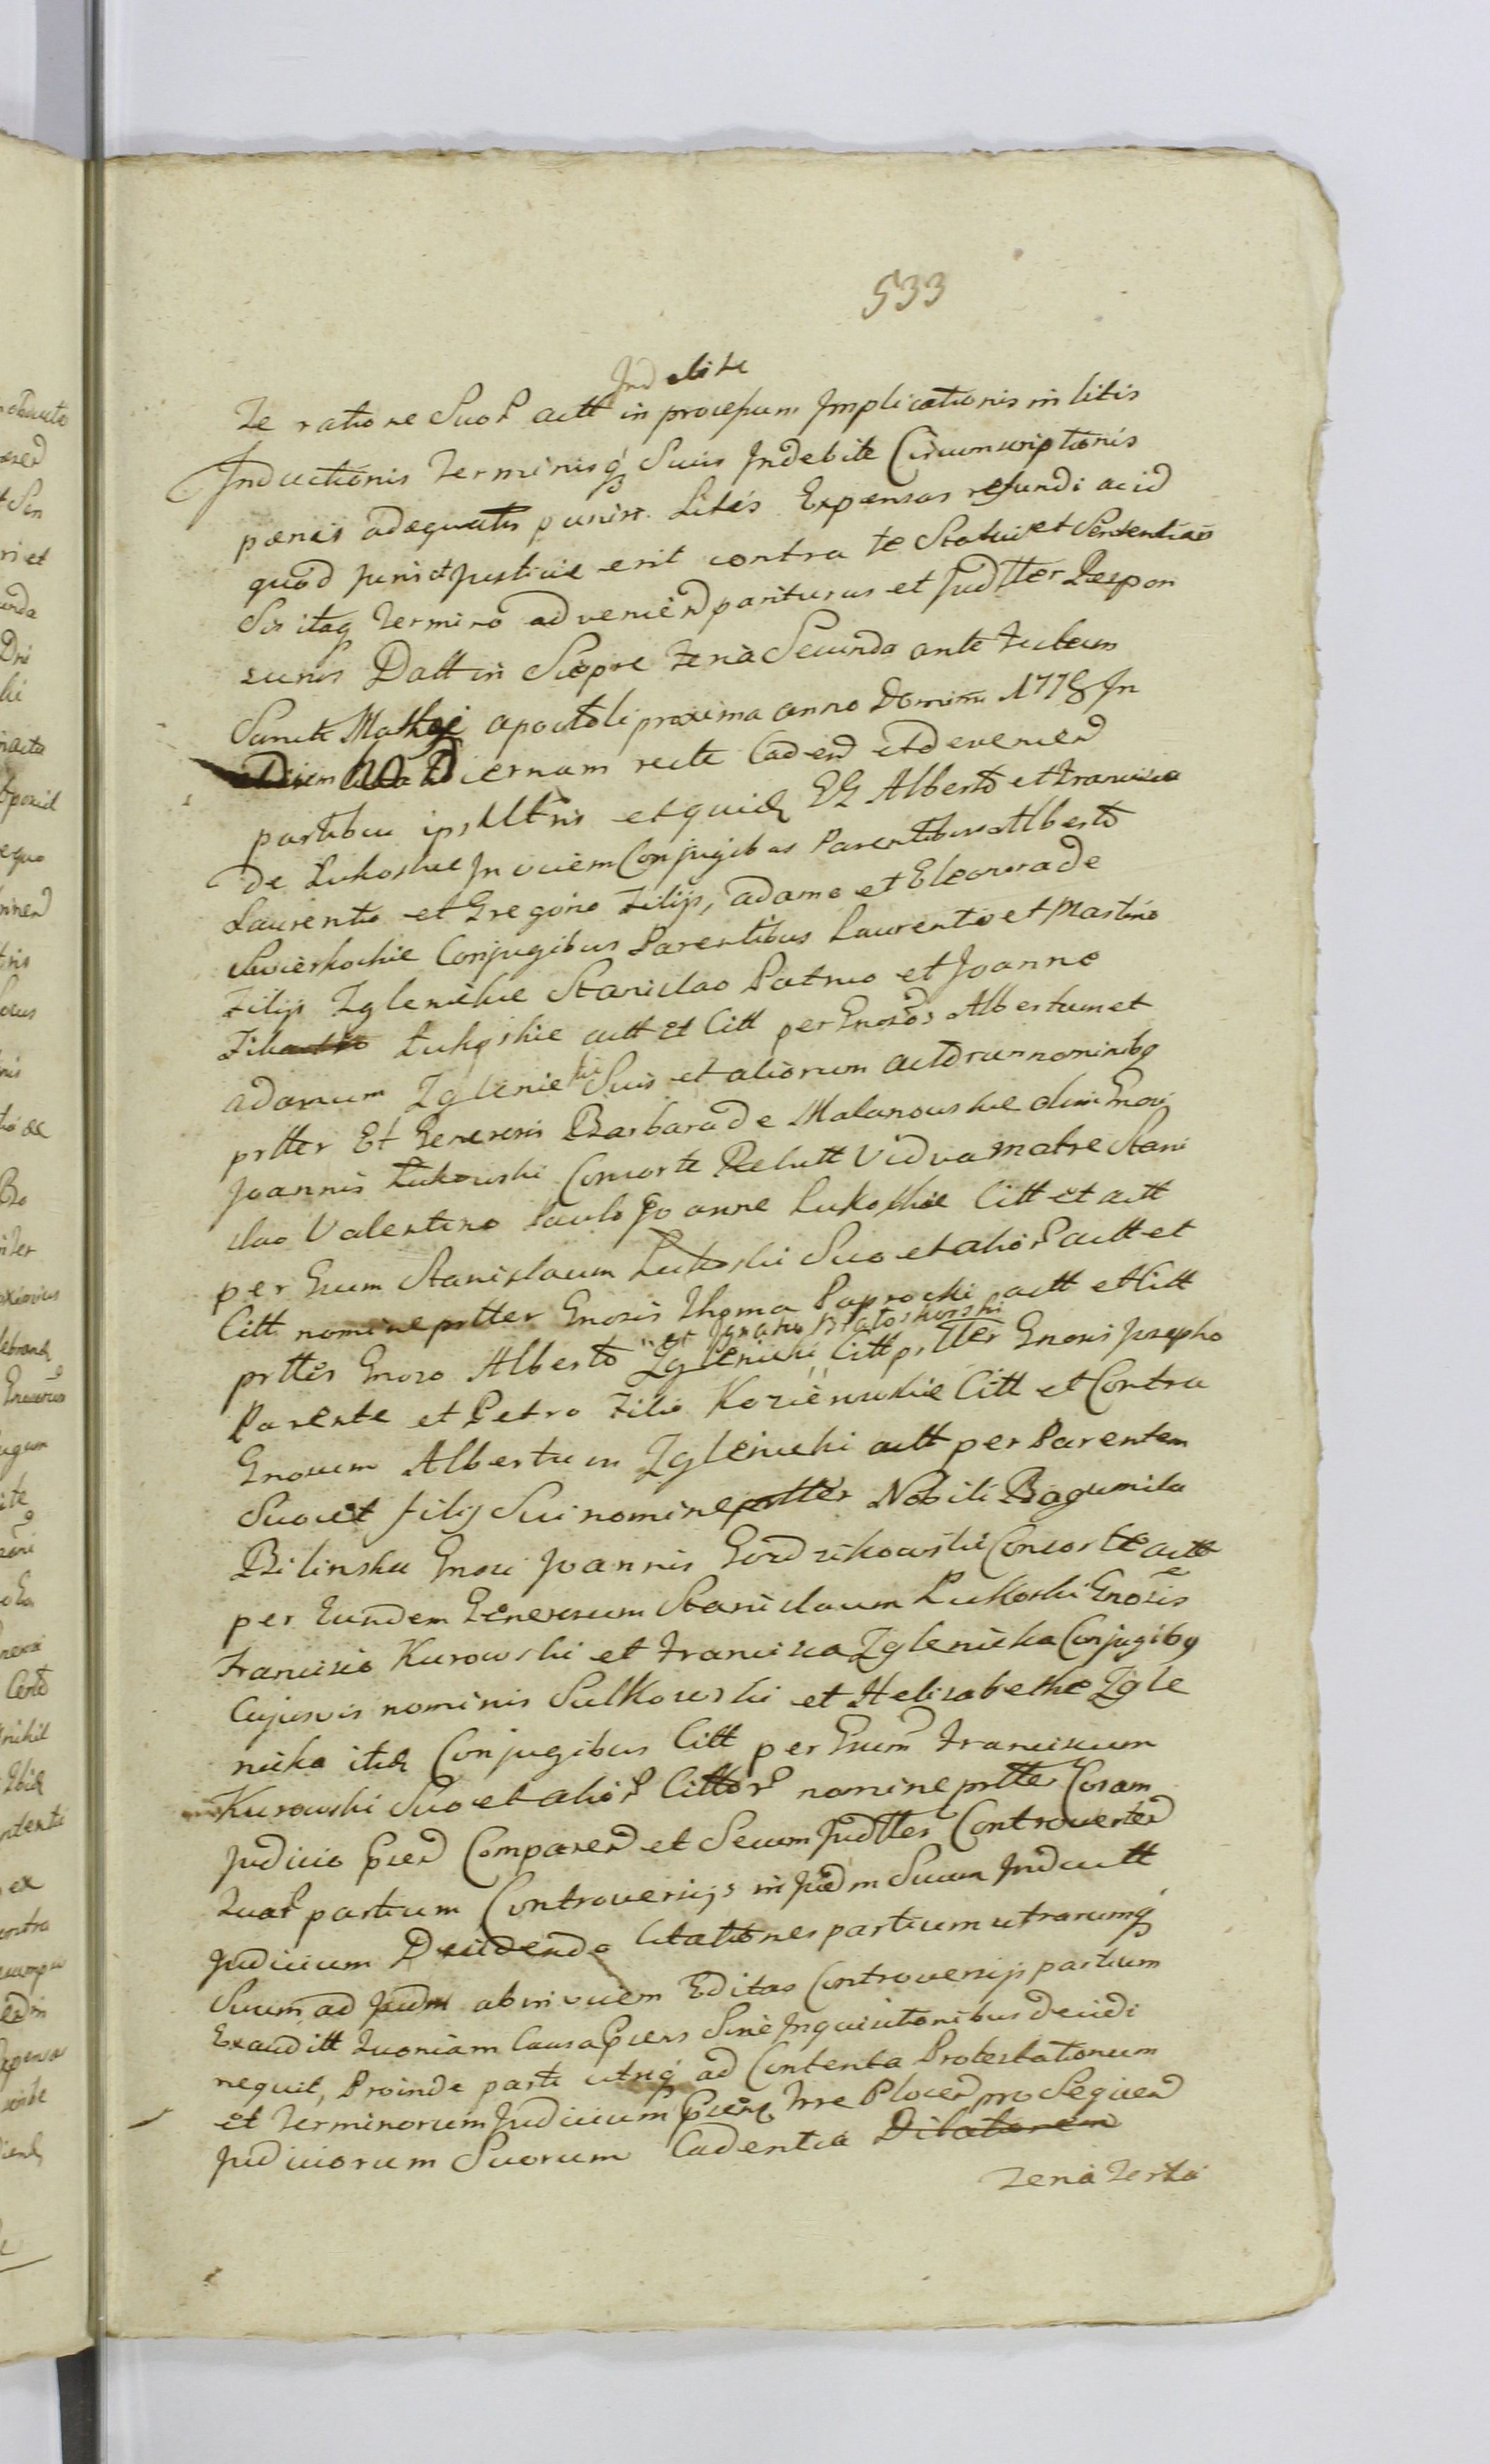 533
Indebite
Te ratione Suor actt in processum Implicationis in litis
Inductionis Terminisq Suis Indebite Circumscriptionis
pœnis adæquatis puniri. Litis Expensas refundi ac id
quod Juris et Justitiæ erit contra te Statui et Sententiari
Sis itaq Termino advenien pariturus et Judtter Respon
surus Datt in Sierpc Feria Secunda ante Festum
Sancti Mathæi apostoli proxima anno Domini 1778 In
Diem Hodiernam recte Caden et devenien
partibus ips Utris et quid GG Alberto et Francisca
De Lukoskie Invicem Conjugibus Parentibus Alberto
Laurentio et Gregorio Filijs, adamo et Eleonora de
Swierkockie Conjugibus Parentibus Laurentio et Martino
Filijs Zglenickie Stanislao Patruo et Joanne
Filiastro Lukoskie actt et Citt per Gnosos Albertum et
adamum Zglenicki Suis et aliorum actorum nominibq
prtter Et Generosis Barbara de Malanowskie olim Gnosi
Joannis Lukowski Consorte Relictt Vidua matre Stani
slao Valentino Paulo Joanne Lukoskie Citt et actt
per Gsum Stanislaum Lukoski Suo et alior actt et
Citt nomine prtter Gnosis Thoma Paprocki actt et Citt
prtter Gnoso Alberto Zglenicki et Ignatio Bratoskowski Citt prtter Gnosis Josepho
Parente et Petro Filio Koziensckie Citt et Contra
Gnosum Albertum Zglenicki actt per Parentem
Suo et filij Sui nomine prtter Nobili Bogumila
Bilinska Gnosi Joannis Gordzikowski Consorte actt
per Eundem Generosum Stanislaum Lukoski Gnosis
Francisco Kurowski et Francisca Zglenicka Conjugibq
Cujusvis nominis Sulkowski et Helisabethe Zgle
nicka itid Conjugibus Citt per Gsum Franciscum
Kurowski Suo et alior Cittor nomine prtter Coram
Judicio Psen Comparen et Secum Judtter Controverten
Quar partium Controversijs in Judm Suum Inductt
Judicium Decidendo Citationes partium utrarumq
Suum ad Judm ab invicem Editas Controversijs partium
Exauditt Quoniam Causa Psens Sine Inquisitionibus decidi
nequit, Proinde parti utriq ad Contenta Protestationum
et Terminorum Judicium Psens Trre Plocen pro Sequen
Judiciorum Suorum Cadentia Dilationem
Feria Tertia